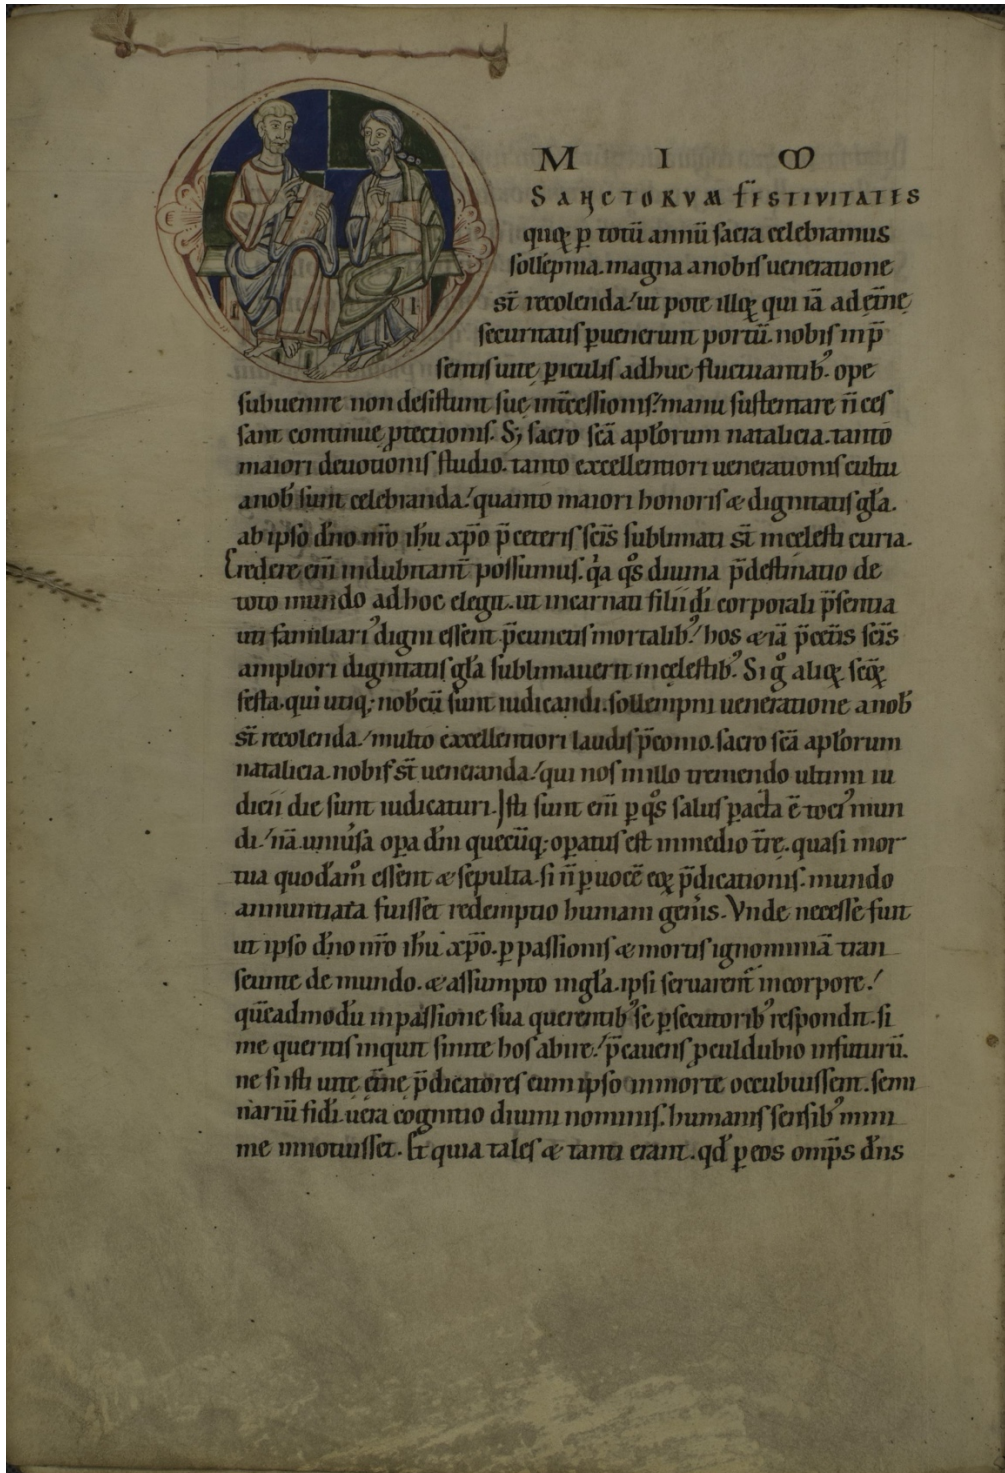 M I M
SANCTORVM FESTIVITATES
quoꝝ ꝑ totū annū sacra celebramus
sollēpnia. magna a nobis ueneratione
st̄ recolenda. ut pote illoꝝ qui iā ad ęt̄nę
securitatis ꝑuenerunt portū. nobis in p̄
sentis uitę ꝑiculis adhuc fluctuantib᷒. ope
subuenire non desistunt suę int̄cessionis. manu sustentare n̄ ces
sant continuę ꝓtectionis. Sꝫ sacro sc̄a apl̄orum natalicia. tanto
maiori deuotionis studio. tanto excellentiori uenerationis cultu
a nob̄ sunt celebranda. quanto maiori honoris & dignitatis gl̄a.
ab ipso dn̄o nr̄o ih̄u xp̄o p̄ ceteris sc̄is sublimati st̄ in cęlesti curia.
Credere em̄ indubitant̄ possumus. qͥa qͦs diuina p̄destinatio de
toto mundo ad hoc elegit. ut incarnati filii dī corporali p̄sentia
uti familiari᷒ digni essent p̄ cunctis mortalib᷒. hos & iā p̄ cect̄is sc̄is
ampliori dignitatis gl̄a sublimauerit in cęlestib᷒. Si gͦ alioꝝ sc̄oꝝ
festa. qui utiqꝫ nob̄cū sunt iudicandi. sollempni ueneratione a nob̄
st̄ recolenda. multo excellentiori laudis p̄conio. sacro sc̄a apl̄orum
natalicia. nobis st̄ ueneranda. qui nos in illo tremendo ultimi iu
dicii die sunt iudicaturi. Isti sunt em̄ ꝑ qͦs salus ꝑacta ē toci᷒ mun
di. nā uniu͛sa oꝑa dn̄i quęcūqꝫ oꝑatus est in medio t̄rę. quasi mor
tua quodāmͦ essent & sepulta. si n̄ ꝑ uocē eoꝝ p̄dicationis. mundo
annuntiata fuisset redemptio humani gen͛is. Vnde necesse fuit
ut ipso dn̄o nr̄o ih̄u xp̄o. ꝑ passionis & mortis ignominiā tran
seunte de mundo. & assumpto in gl̄a. ipsi seruarent̄ in corpore.
quēadmodū in passione sua querentib᷒ se ꝑsecutorib᷒ respondit. si
me queritis inquit sinite hos abire. p̄cauens ꝓculdubio in futurū.
ne si isti uitę ęt̄nę p̄dicatores cum ipso in morte occubuissent. semi
nariū fidi. uera cognitio diuini nominis. humanis sensib᷒ mini
me innotuisset. Et quia tales & tanti erant. qd̄ ꝑ eos omp̄s dn̄s